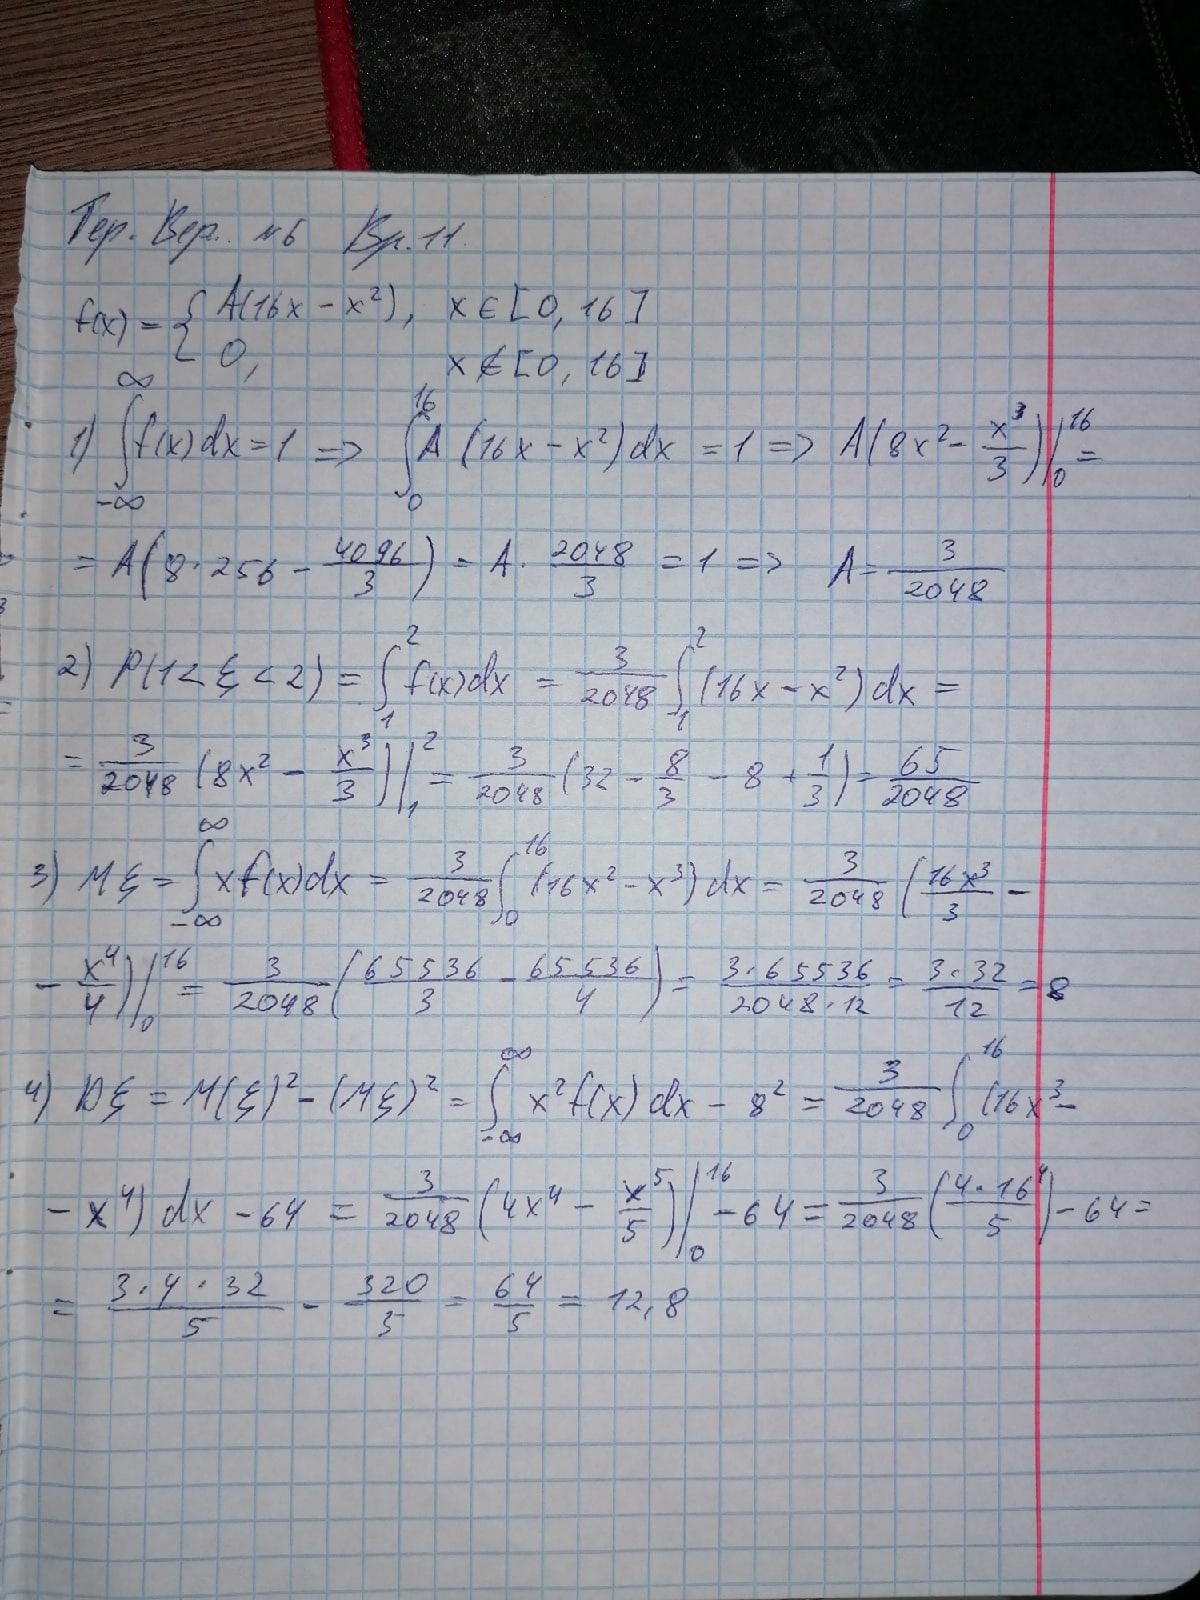 Тер. Вер. №6 Вр. 11.
f(x) = { A(16x − x²), x ∈ [0, 16]
0, x ∉ [0, 16]
1) ∫_{-∞}^{∞} f(x)dx = 1 => ∫_0^16 A (16x − x²)dx = 1 => A(8x² − x³/3)|_0^16 =
= A(8·256 − 4096/3) = A · 2048/3 = 1 => A = 3/2048
2) P(1 < ξ < 2) = ∫_1^2 f(x)dx = 3/2048 ∫_1^2 (16x − x²)dx =
= 3/2048 (8x² − x³/3)|_1^2 = 3/2048 (32 − 8/3 − 8 + 1/3) = 65/2048
3) Mξ = ∫_{-∞}^{∞} xf(x)dx = 3/2048 ∫_0^16 (16x² − x³)dx = 3/2048 (16x³/3 −
− x⁴/4)|_0^16 = 3/2048 (65536/3 − 65536/4) = 3·65536/2048·12 = 3·32/12 = 8
4) Dξ = M(ξ)² − (Mξ)² = ∫_{-∞}^{∞} x²f(x)dx − 8² = 3/2048 ∫_0^16 (16x³ −
− x⁴)dx − 64 = 3/2048 (4x⁴ − x⁵/5)|_0^16 − 64 = 3/2048 (4·16⁴/5) − 64 =
= 3·4·32/5 − 320/5 = 64/5 = 12,8